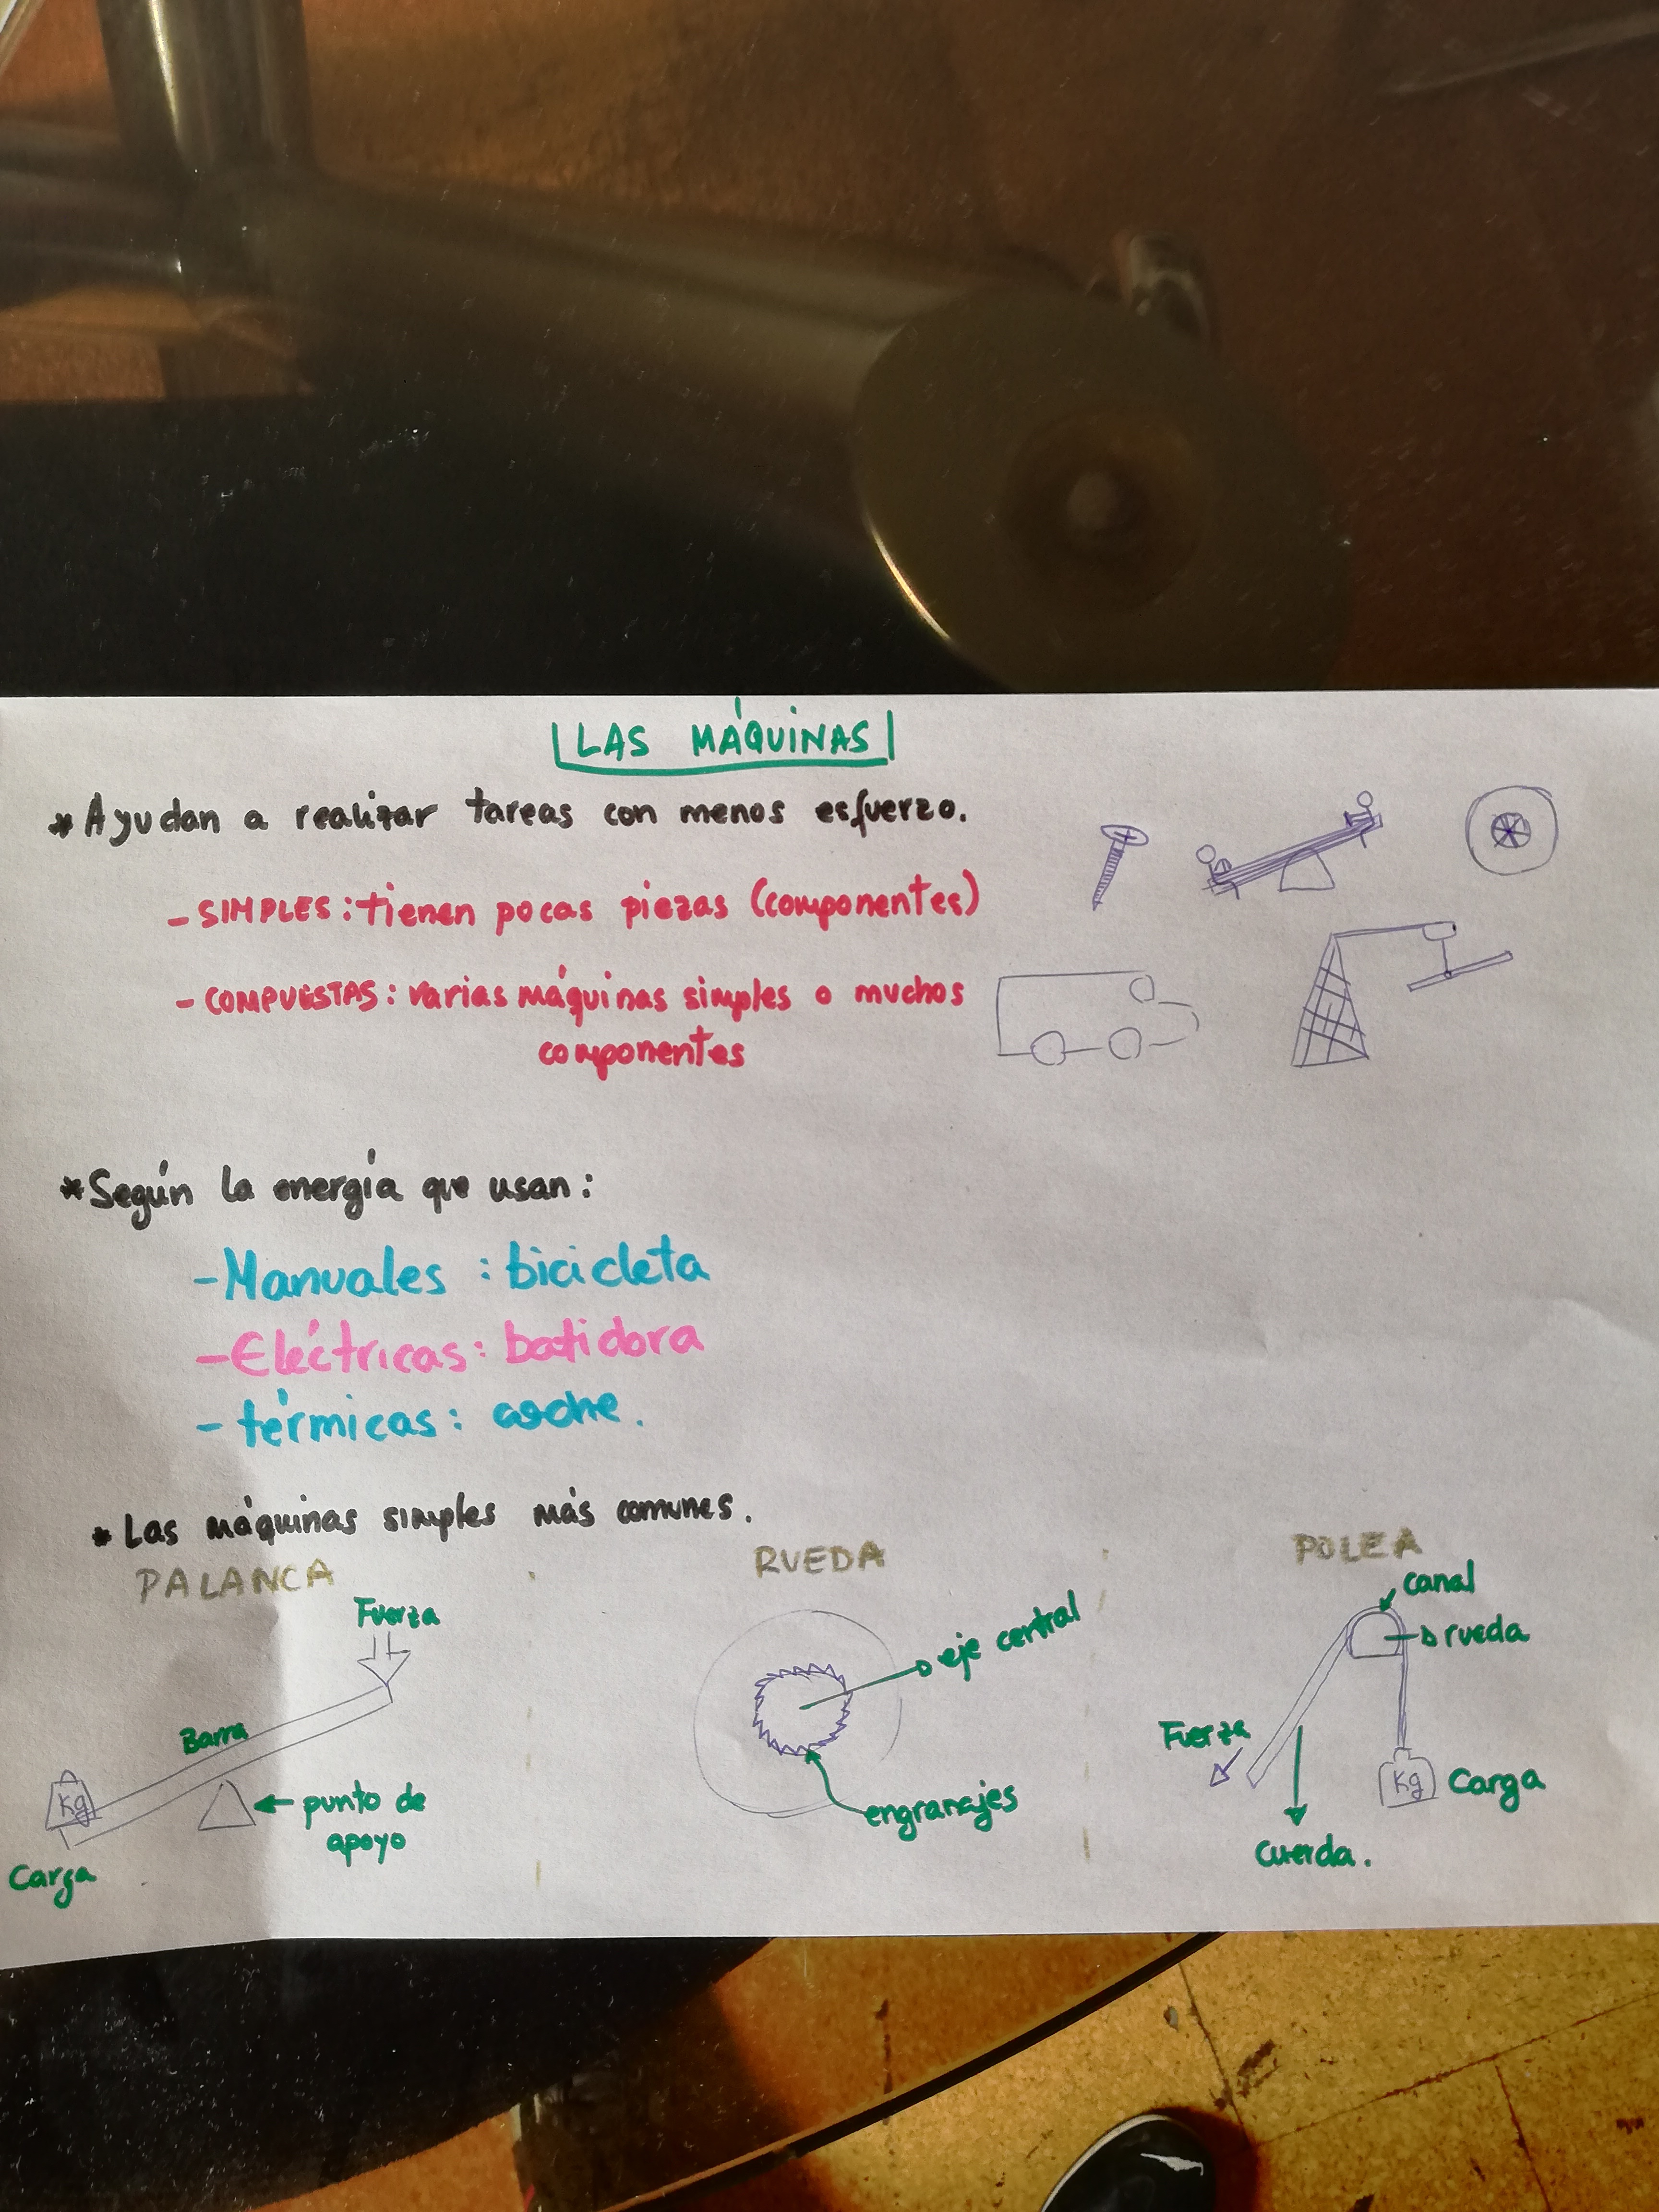 LAS MÁQUINAS
* Ayudan a realizar tareas con menos esfuerzo.
- SIMPLES: tienen pocas piezas (componentes)
- COMPUESTAS: varias máquinas simples o muchos
componentes
* Según la energía que usan:
- Manuales : bicicleta
- Eléctricas: batidora
- térmicas: coche.
* Las máquinas simples más comunes.
PALANCA
Fuerza
Barra
Kg
punto de
apoyo
Carga
RUEDA
eje central
engranajes
POLEA
canal
rueda
Fuerza
Kg
Carga
Cuerda.